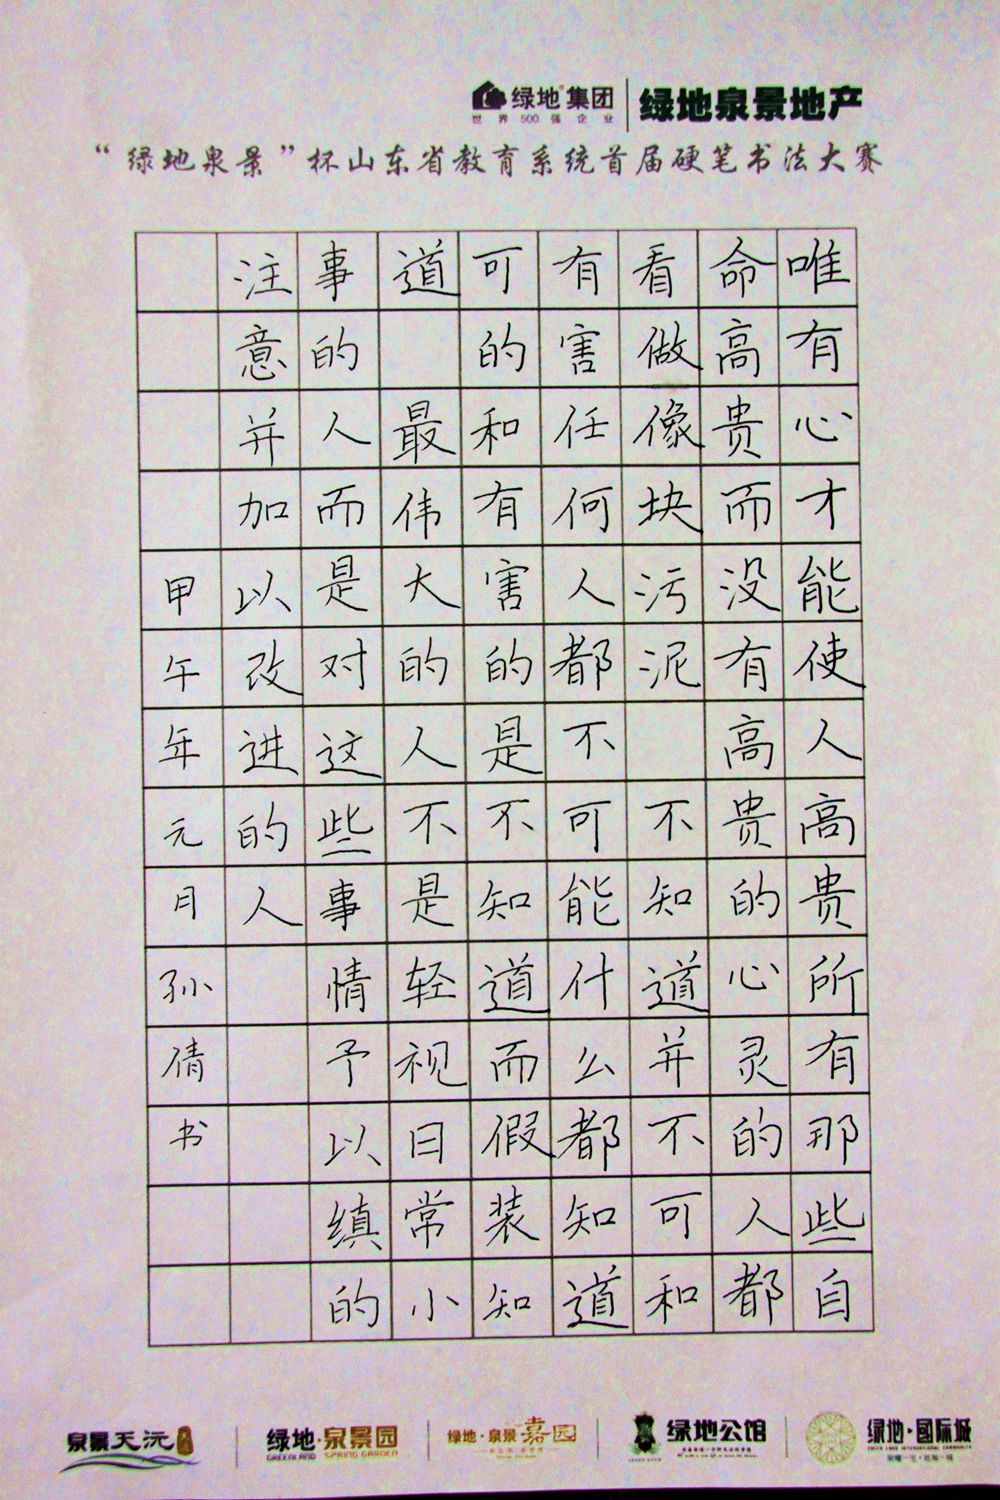 绿地集团
世界500强企业
绿地泉景地产
“绿地泉景”杯山东省教育系统首届硬笔书法大赛
唯有心才能使人高贵所有那些自
命高贵而没有高贵的心灵的人都
看做像块污泥 不知道并不可和
有害任何人都不可能什么都知道
可的和有害的是不知道而假装知
道 最伟大的人不是轻视日常小
事的人而是对这些事情予以缜的
注意并加以改进的人
甲午年元月孙倩书
泉景天沅
绿地·泉景园
GREENLAND SPRING GARDEN
绿地·泉景嘉园
绿地公馆
绿地·國际城